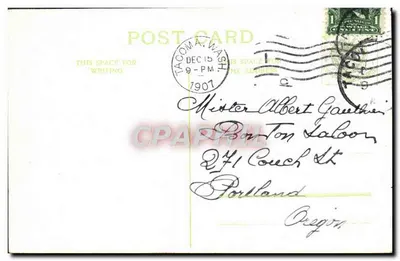 POST CARD
THIS SPACE FOR
WRITING
TACOMA, WASH.
DEC 15
9-PM
1907
1
1
Mister Albert Gauthier
Bon Ton Saloon
271 Couch St
Portland
Oregon